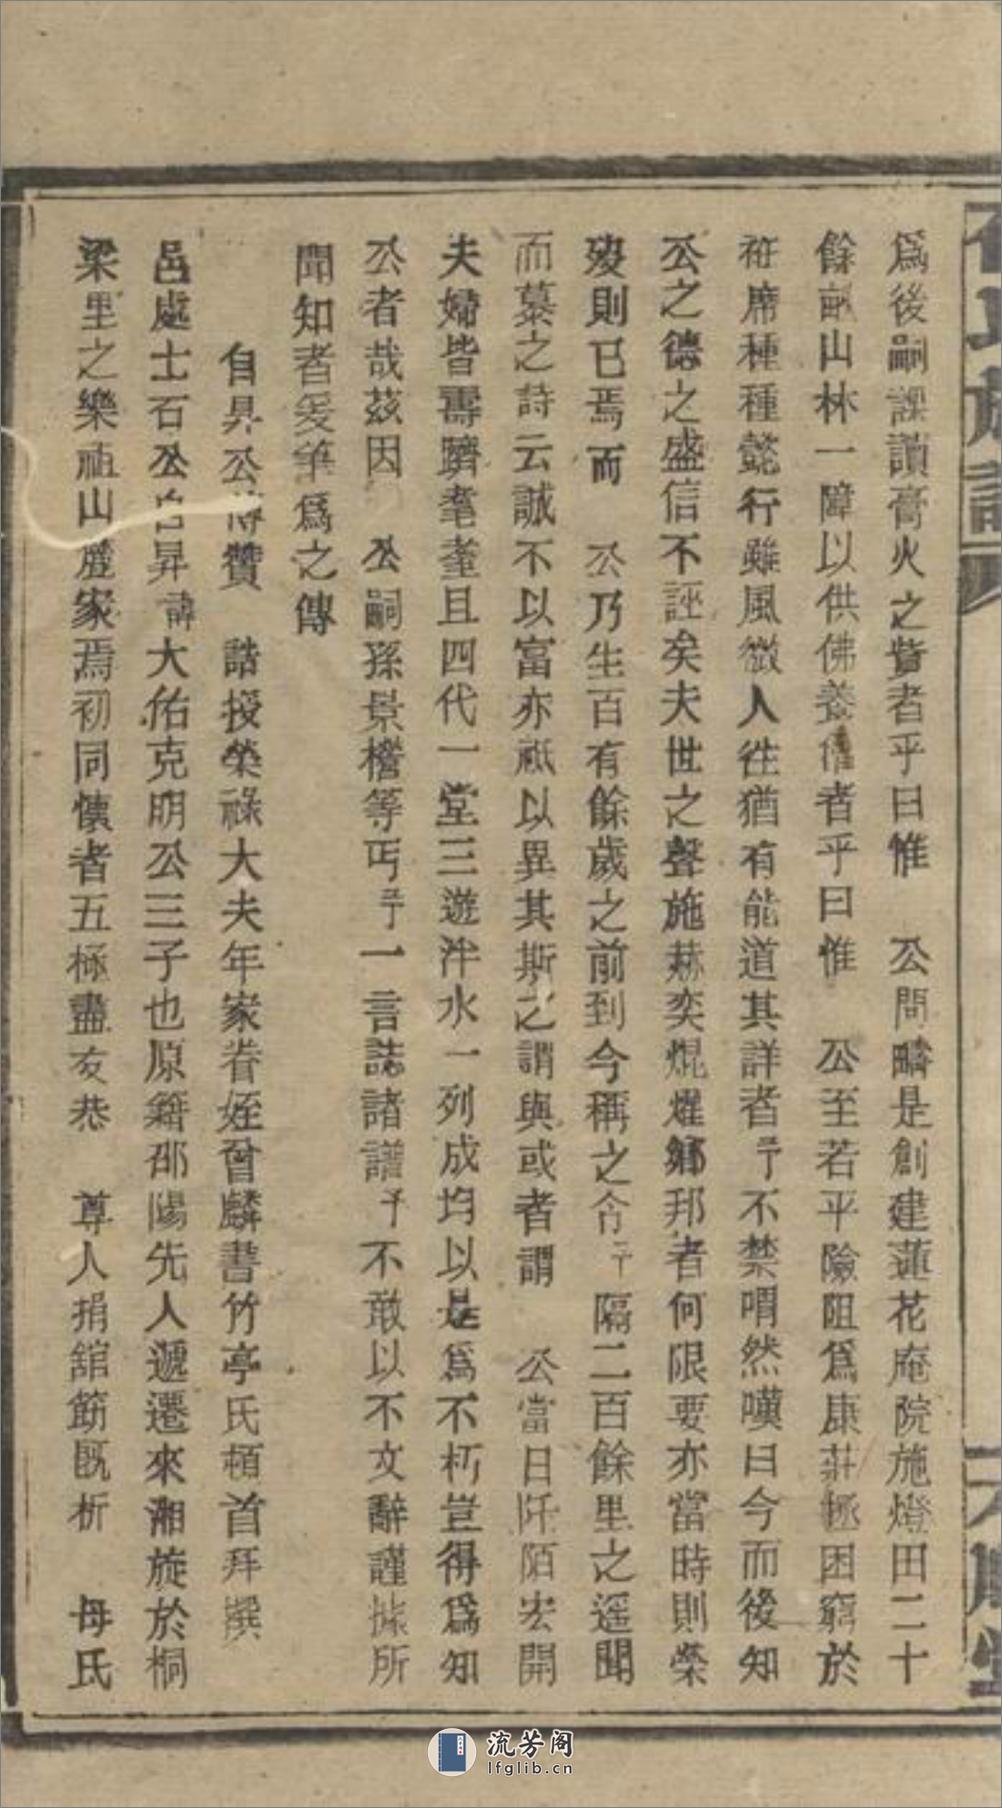 爲後嗣課讀膏火之貲者乎曰惟　公問疇是創建蓮花庵院施燈田二十
餘畝山林一障以供佛養僧者乎曰惟　公至若平險阻爲康莊拯困窮於
袵席種種懿行雖風微人往猶有能道其詳者予不禁喟然嘆曰今而後知
公之德之盛信不誣矣夫世之聲施赫奕焜燿鄉邦者何限要亦當時則榮
歿則已焉而　公乃生百有餘歲之前到今稱之令予隔二百餘里之遥聞
而慕之詩云誠不以富亦祇以異其斯之謂與或者謂　公當日阡陌宏開
夫婦皆壽躋耄耋且四代一堂三遊泮水一列成均以是爲不朽豈得爲知
公者哉茲因　公嗣孫景檐等丐予一言誌諸譜予不敢以不文辭謹據所
聞知者爰筆爲之傳
自昇公傳贊　誥授榮祿大夫年家眷姪曾麟書竹亭氏頓首拜撰
邑處士石公自昇諱大佑克明公三子也原籍邵陽先人遞遷來湘旋於桐
梁里之樂祖山麓家焉初同懷者五極盡友恭　尊人捐舘箚既析　母氏
流芳阁
lfglib.cn